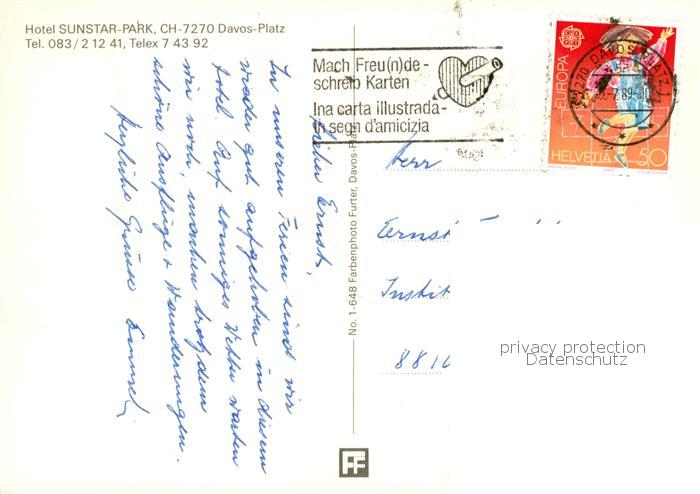 Hotel SUNSTAR-PARK, CH-7270 Davos-Platz
Tel. 083/2 12 41, Telex 7 43 92
Mach Freu(n)de-
schreib Karten
Ina carta illustrada-
in segn d'amicizia
EUROPA
HELVETIA 50
7270 DAVOS PLATZ 1
Lieber Ernst,
In unseren Ferien sind wir
wieder gut aufgehoben in diesem
Hotel. Auf sonniges Wetter warten
wir noch, machen trotzdem
schöne Ausflüge + Wanderungen.
Herzliche Grüsse
No. 1-648 Farbenphoto Furter, Davos-Platz
Herr
Ernst
Instit
8810
privacy protection
Datenschutz
FF